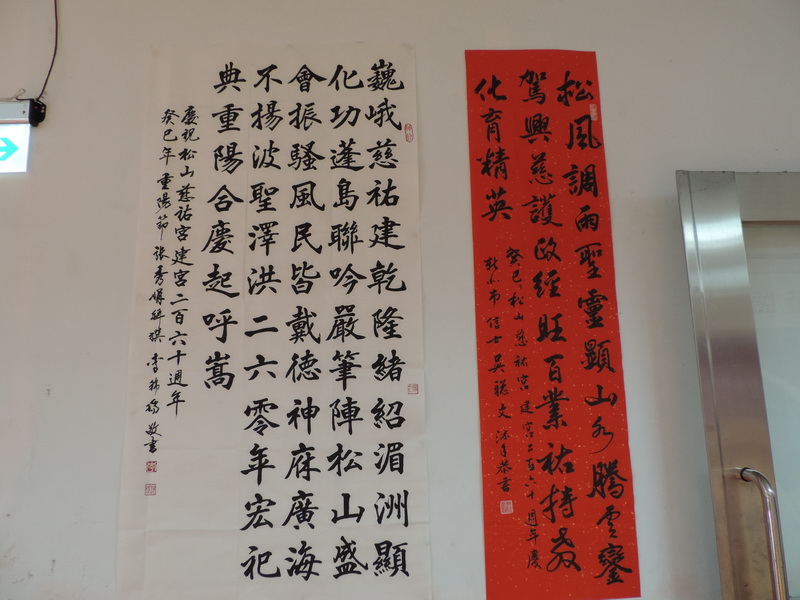 松風調雨聖靈顯山水騰雲鑾
駕興慈護政經旺百業祐持教
化育精英
癸巳松山慈祐宮建宮二百六十週年慶
新北市信士吳聰文沐手恭書
巍峨慈祐建乾隆緒紹湄洲顯
化功蓬島聯吟嚴筆陣松山盛
會振騷風民皆戴德神庥廣海
不揚波聖澤洪二六零年宏祀
典重陽合慶起呼嵩
慶祝松山慈祐宮建宮二百六十週年
癸巳年重陽節張秀娟 撰李 敬書